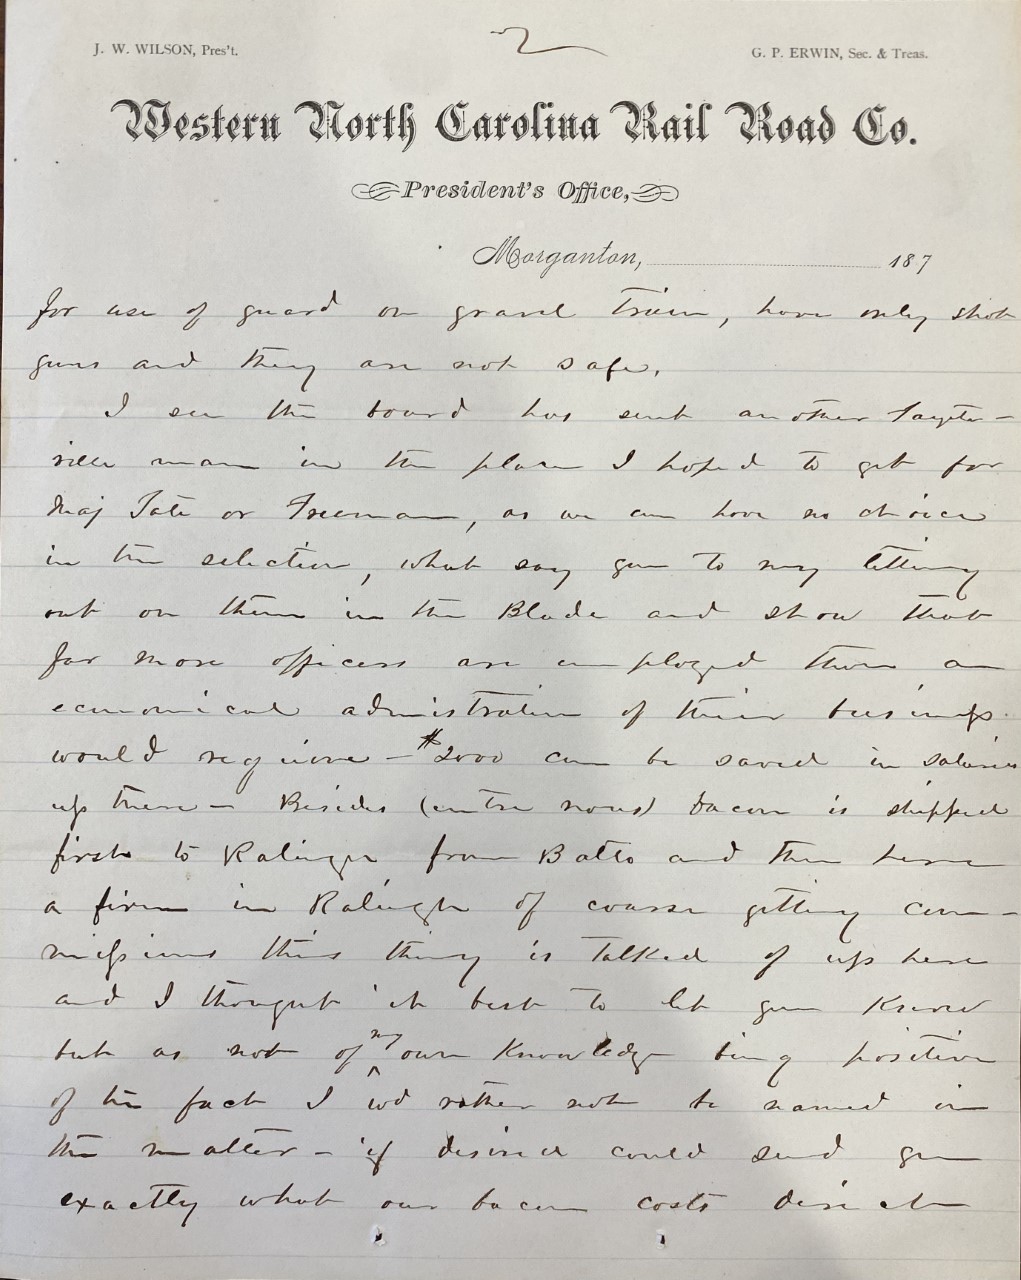 2
J. W. WILSON, Pres't.
G. P. ERWIN, Sec. & Treas.
Western North Carolina Rail Road Co.
President's Office,
Morganton, 187
for use of guard on gravel train, have only shot
guns and they are not safe.
I see the board has sent another Fayette-
ville man in the place I hoped to get for
Maj Tate or Freeman, as we can have no choice
in the selection, what say you to my letting
out on them in the Blade and show that
far more officers are employed than an
economical administration of their business
would require - $2000 can be saved in salaries
up there - Besides (entre nous) bacon is shipped
first to Raleigh from Balto and then here
a firm in Raleigh of course getting com-
missions this thing is talked of up here
and I thought it best to let you know
but as not of my own knowledge being positive
of the fact I wd rather not be named in
the matter - if desired could send you
exactly what our bacon costs direct